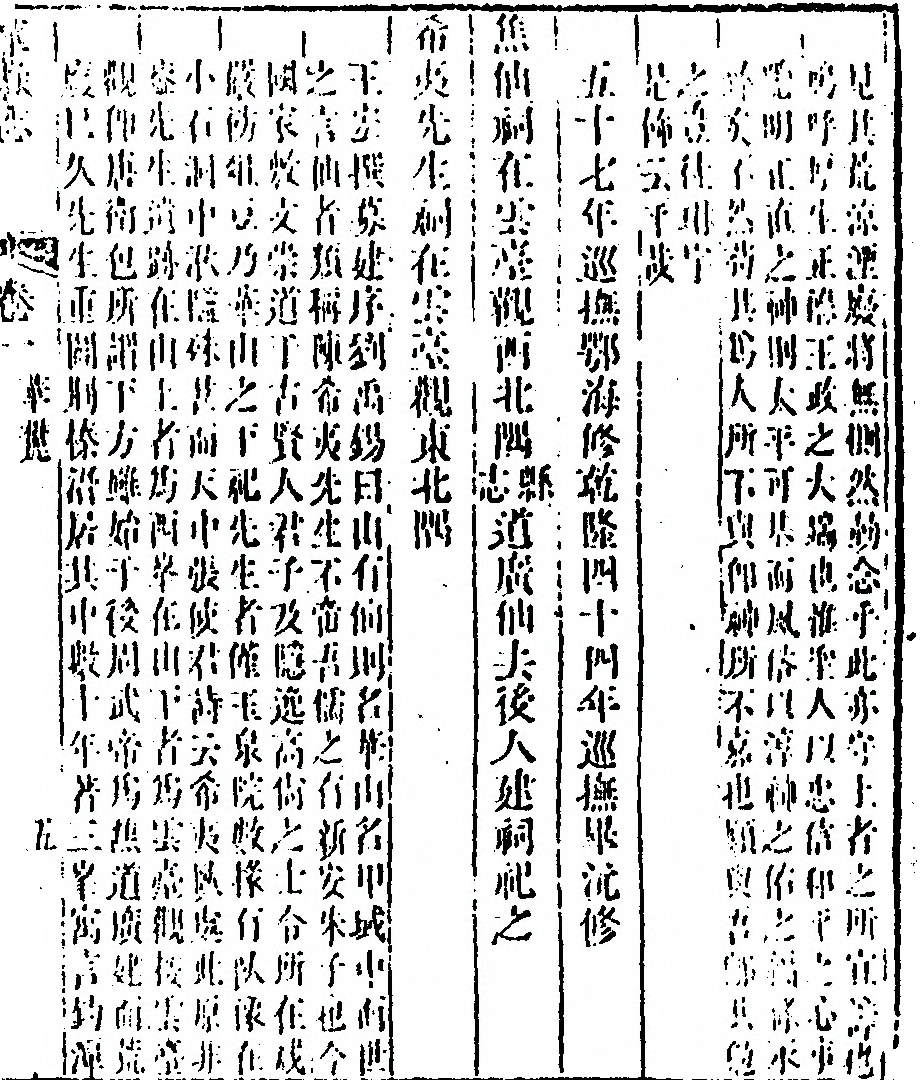 見其荒涼湮廢將無惻然動念乎此亦守土者之所宜
嗚呼厚生正德王政之大端也惟聖人以忠信和平之心事
明正直之神則太平可基而風俗以淳神之佑之福
不然苟其為人所不與即神所不嘉也願與吾
五十七年巡撫鄂海修乾隆四十四年巡撫畢沅修
焦仙祠在雲臺觀西北隅縣志道廣仙去後人建祠祀之
希夷先生祠在雲臺觀東北隅
王安撰募建序劉禹錫曰山有仙則名華山名甲域中而世
之言仙者類稱陳希夷先生不啻吾儒之有新安朱子也今
國家敷文崇道于古賢人君子及隱逸高尚之士令所在咸
嚴仿俎豆乃華山之下祀先生者僅玉泉院數椽行臥像在
小石洞中湫隘殊甚而天中張使君詩云希夷臥處此原非
先生遺跡在山上者為西峯在山下者為雲臺觀按雲臺
觀仰唐衛包所謂下方雖始于後周武帝為焦道廣建而荒
廢已久先生重闢荆榛潛居其中數十年著三峯寓言鈞潭
卷一
華嶽
五